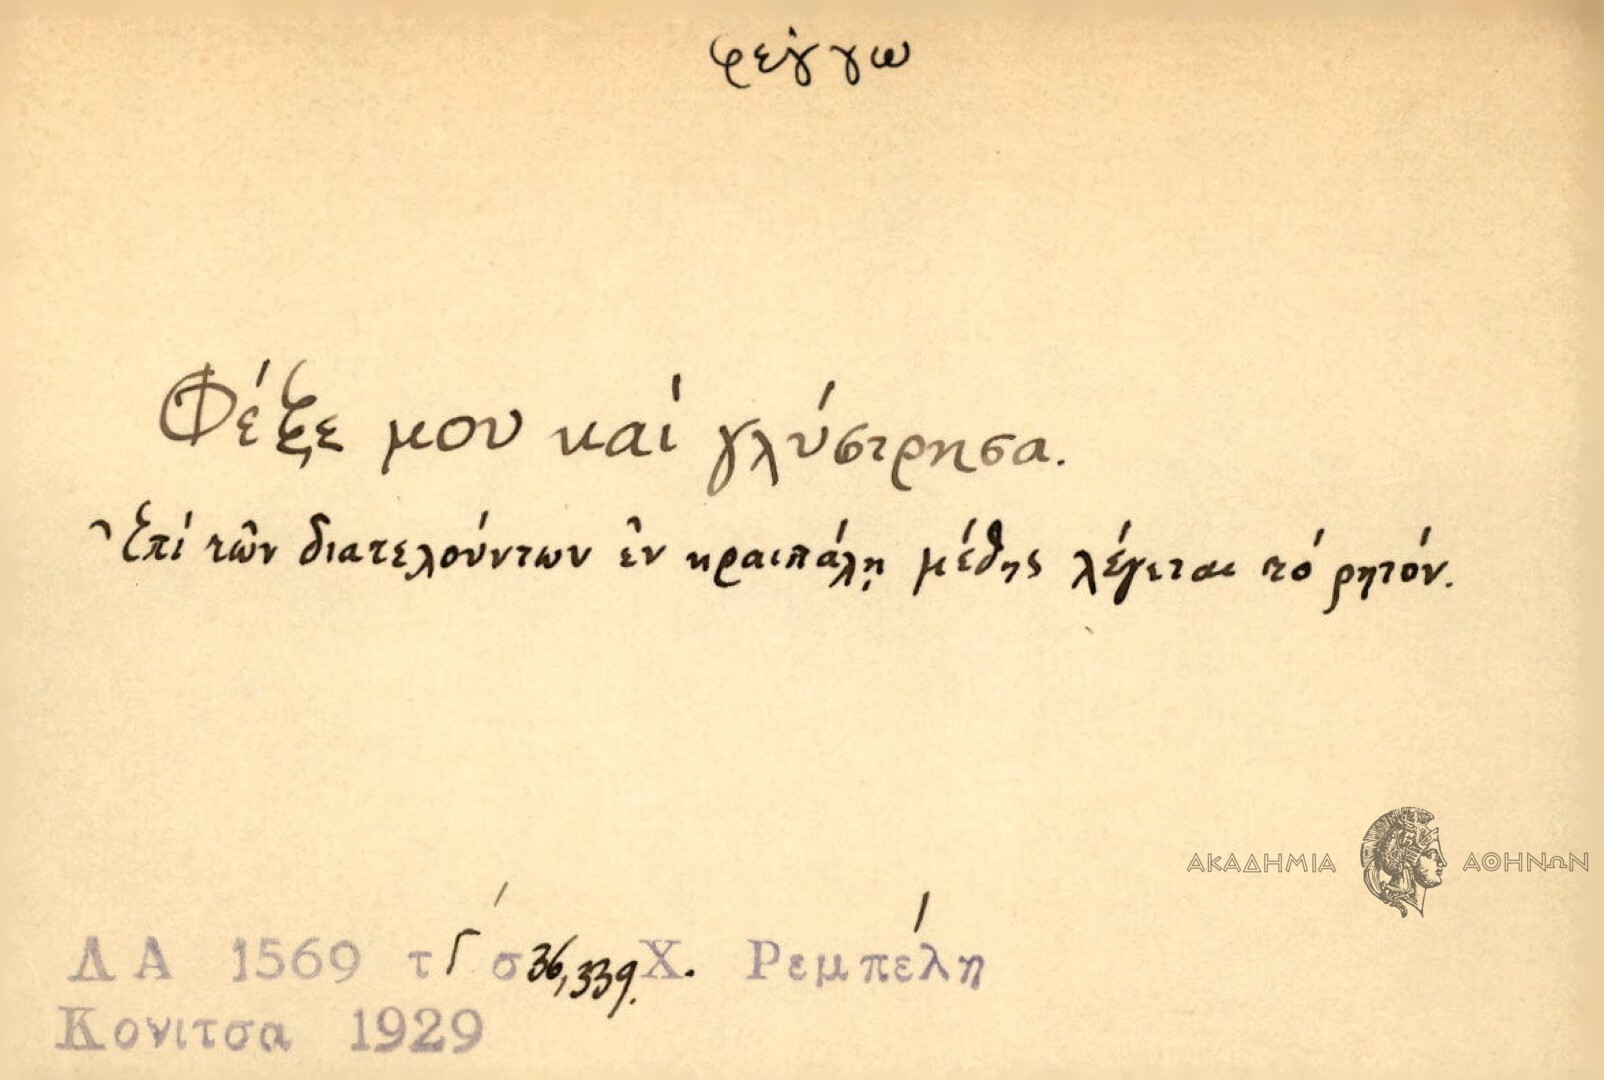 φέγγω
Φέξε μου καί γλύστρησα.
Ἐπί τῶν διατελούντων ἐν κραιπάλῃ μέθης λέγεται τό ρητόν.
ΑΚΑΔΗΜΙΑ ΑΘΗΝΩΝ
ΛΑ 1569 τ Γ΄ σ 36,339. Χ. Ρεμπέλη
Κονιτσα 1929